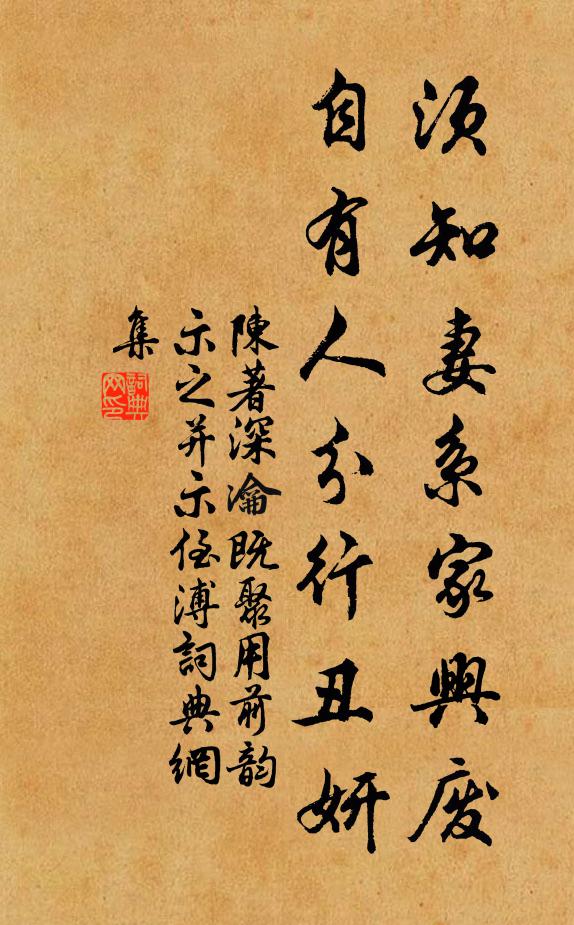 須知妻系家興废
自有人分行丑妍
陳著深瀹既聚用前韵
示之并示侄溥詞典網
集
詞典网印